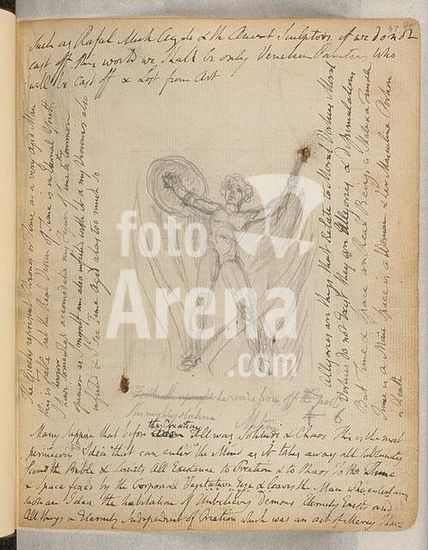 Such as Rafael Mich Angelo & the Ancient Sculptors. if we do not
cast off this world we shall be only Venetian Painters who
will be cast off & Lost from Art
The Greeks represent Chronos or Time as a very Aged Man
this is Fable but the Real Vision of Time is in Eternal Youth
I have however somewhat accomodated my Figure of Time to the common
opinion as I myself am also infected with it & my Visions also
infected & I see Time Aged alas too much so
Allegories are things that Relate to Moral Virtues Moral
Virtues do not Exist they are Allegories & dissimulations
But Time & Space are Real Beings a Male & a Female
Time is a Man Space is a Woman & her Masculine Portion
is Death
foto
Arena
.com
the Creation
Many suppose that before All was Solitude & Chaos This is the most
pernicious Idea that can enter the Mind as it takes away all sublimity
from the Bible & Limits All Existence to Creation & to Chaos To the Time
& Space fixed by the Corporeal Vegetative Eye & leaves the Man who entertains
such an Idea the habitation of Unbelieving Demons Eternity Exists and
All things in Eternity Independent of Creation which was an act of Mercy